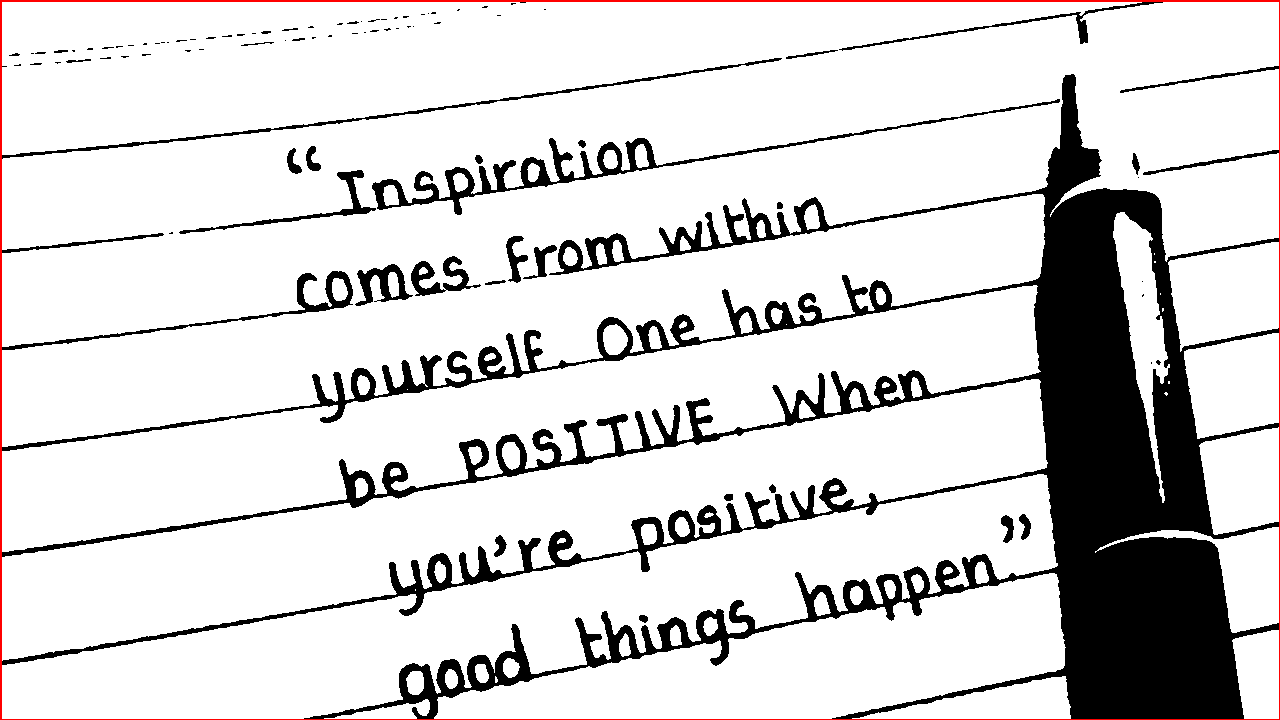 “Inspiration
comes from within
yourself. One has to
be POSITIVE. When
you're positive,
good things happen.”